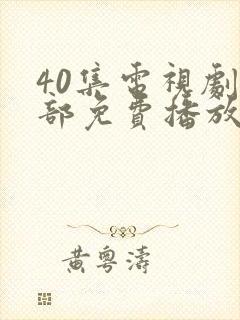 40集電視劇
部免費播放
黃粵濤